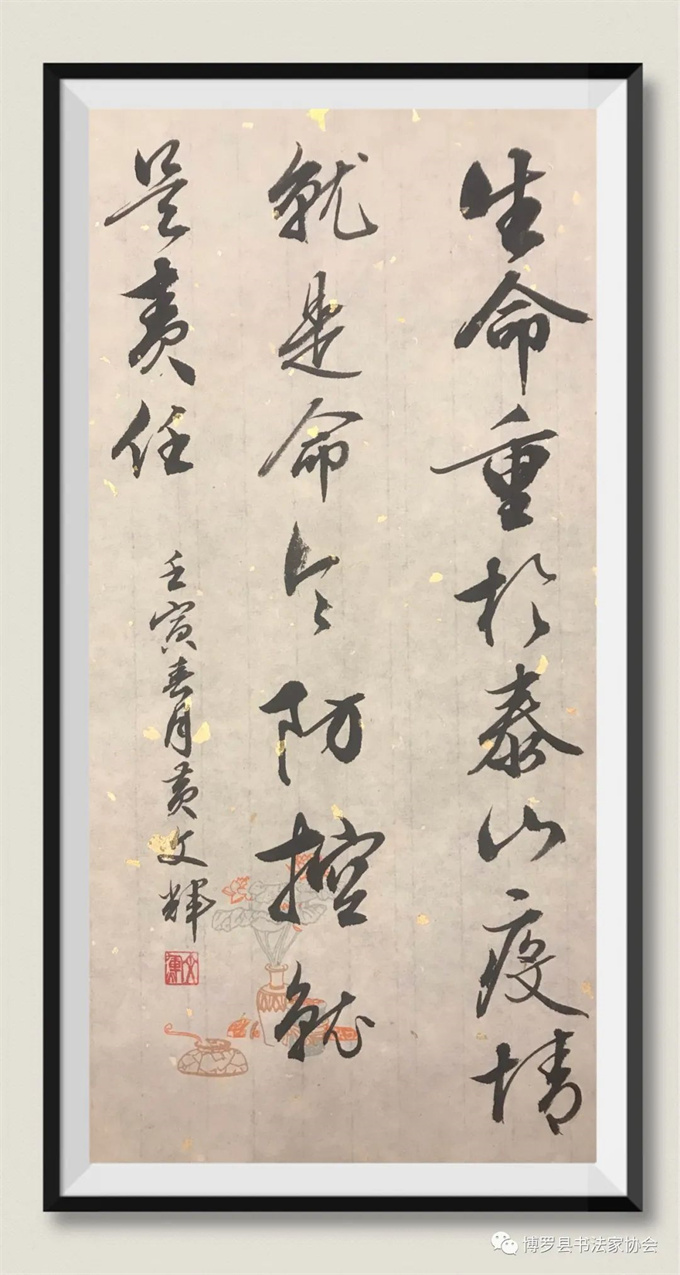 生命重於泰山疫情
就是命令防控就
是责任
壬寅春月黄文辉
文辉
博罗县书法家协会